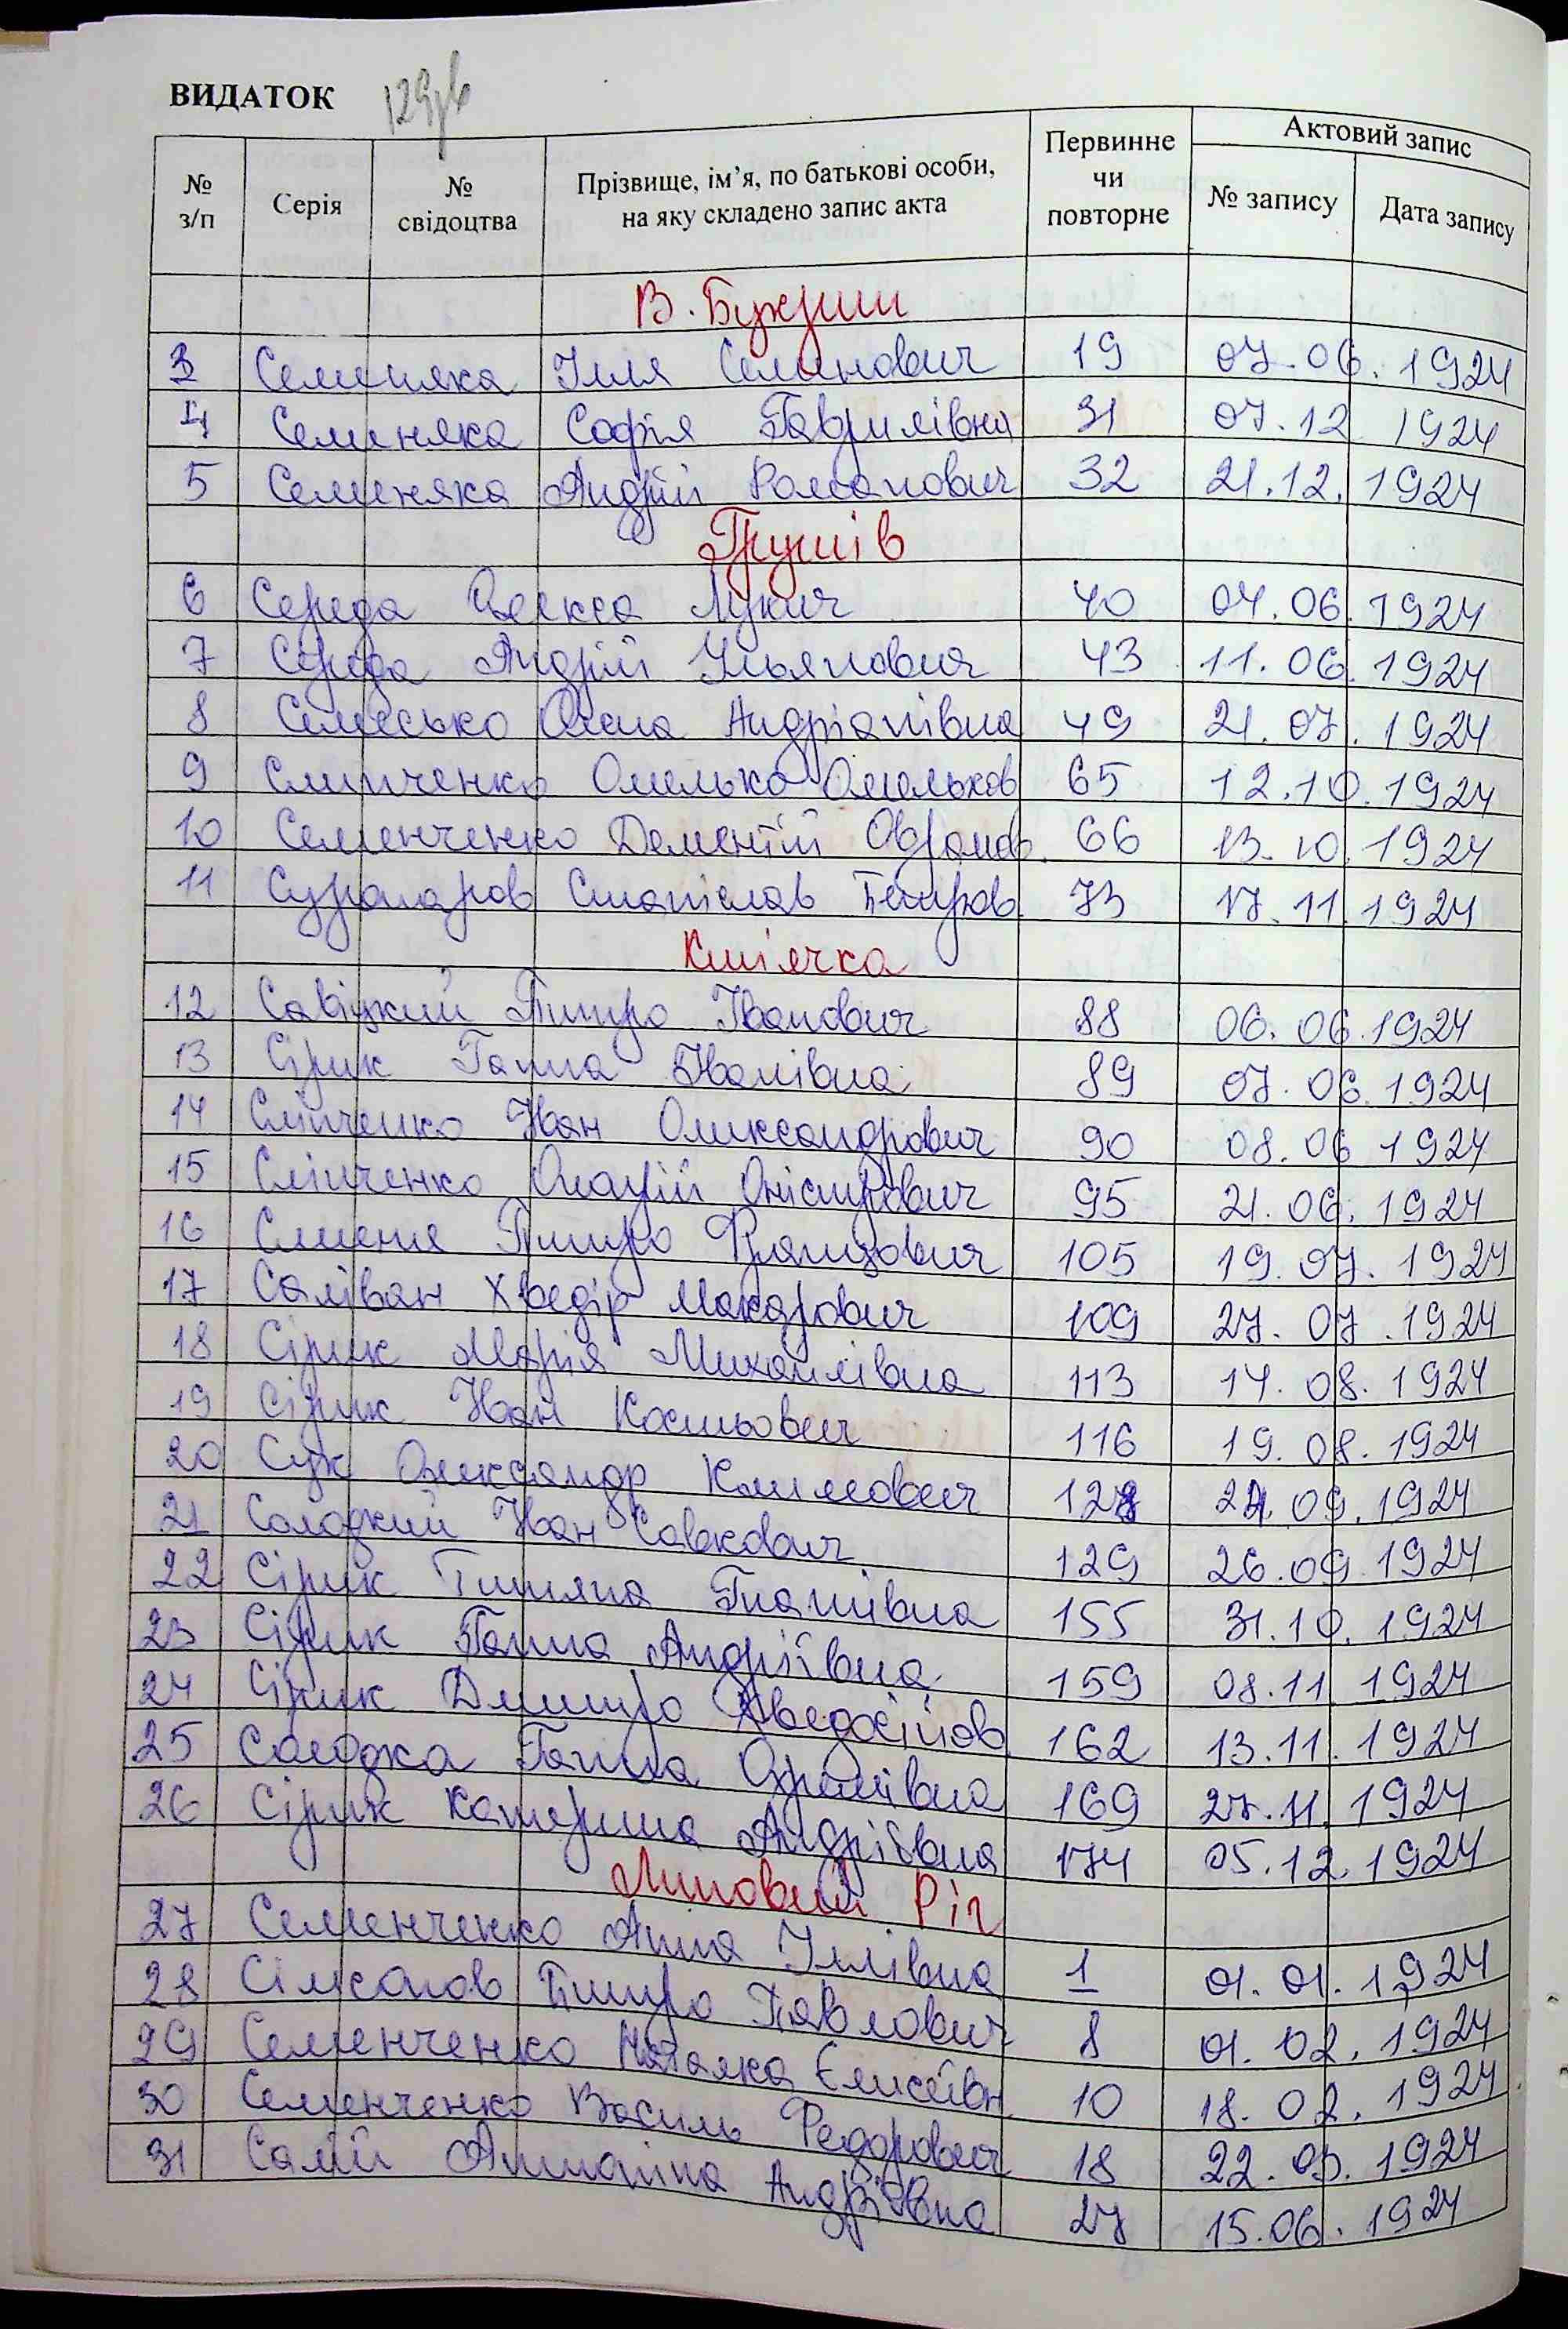 ВИДАТОК 129зв
№ з/п Серія № свідоцтва Прізвище, ім’я, по батькові особи, на яку складено запис акта Первинне чи повторне Актовий запис № запису Дата запису
В. Букрин
3 Семеняка Ілля Семенович 19 07.06.1924
4 Семеняка Софія Гаврилівна 31 07.12 1924
5 Семеняка Андрій Романович 32 21.12.1924
Грушів
6 Середа Олекса Лукич 40 04.06.1924
7 Середа Андрій Ульянович 43 11.06.1924
8 Семесько Олена Андріанівна 49 21.07.1924
9 Слипченко Омелько Омельков 65 12.10.1924
10 Семенченко Дементій Офранов. 66 13.10.1924
11 Станіслав Петров. 73 17.11.1924
Кип'ячка
12 Савіцкий Питро Іванович 88 06.06.1924
13 Сірик Ганна Іванівна 89 07.06.1924
14 Сліпченко Іван Олександрович 90 08.06 1924
15 Сліпченко Оністрович 95 21.06.1924
16 Питро Францович 105 19.07.1924
17 Саліван Хведір Макарович 109 27.07.1924
18 Сірик Марія Михайлівна 113 14.08.1924
19 Сірик Іван Костьович 116 19.08.1924
20 Сук Олександр Климович 128 24.09.1924
21 Солодкий Іван Савкович 129 26.09.1924
22 Сірик Титяна Гнатівна 155 31.10.1924
23 Сірик Ганна Андріївна 159 08.11.1924
24 Сірик Дмитро Хведосійов. 162 13.11.1924
25 Солодка Ганна Юхимівна 169 27.11.1924
26 Сірик Катерина Андріївна 174 05.12.1924
Липовий Ріг
27 Семенченко Анна Іллівна 1 01.01.1924
28 Сімсонов Питро Павлович 8 01.02.1924
29 Семенченко Наталка Єлисеївн 10 18.02.1924
30 Семенченко Василь Федорович 18 22.03.1924
31 Салій Андріївна 27 15.06.1924